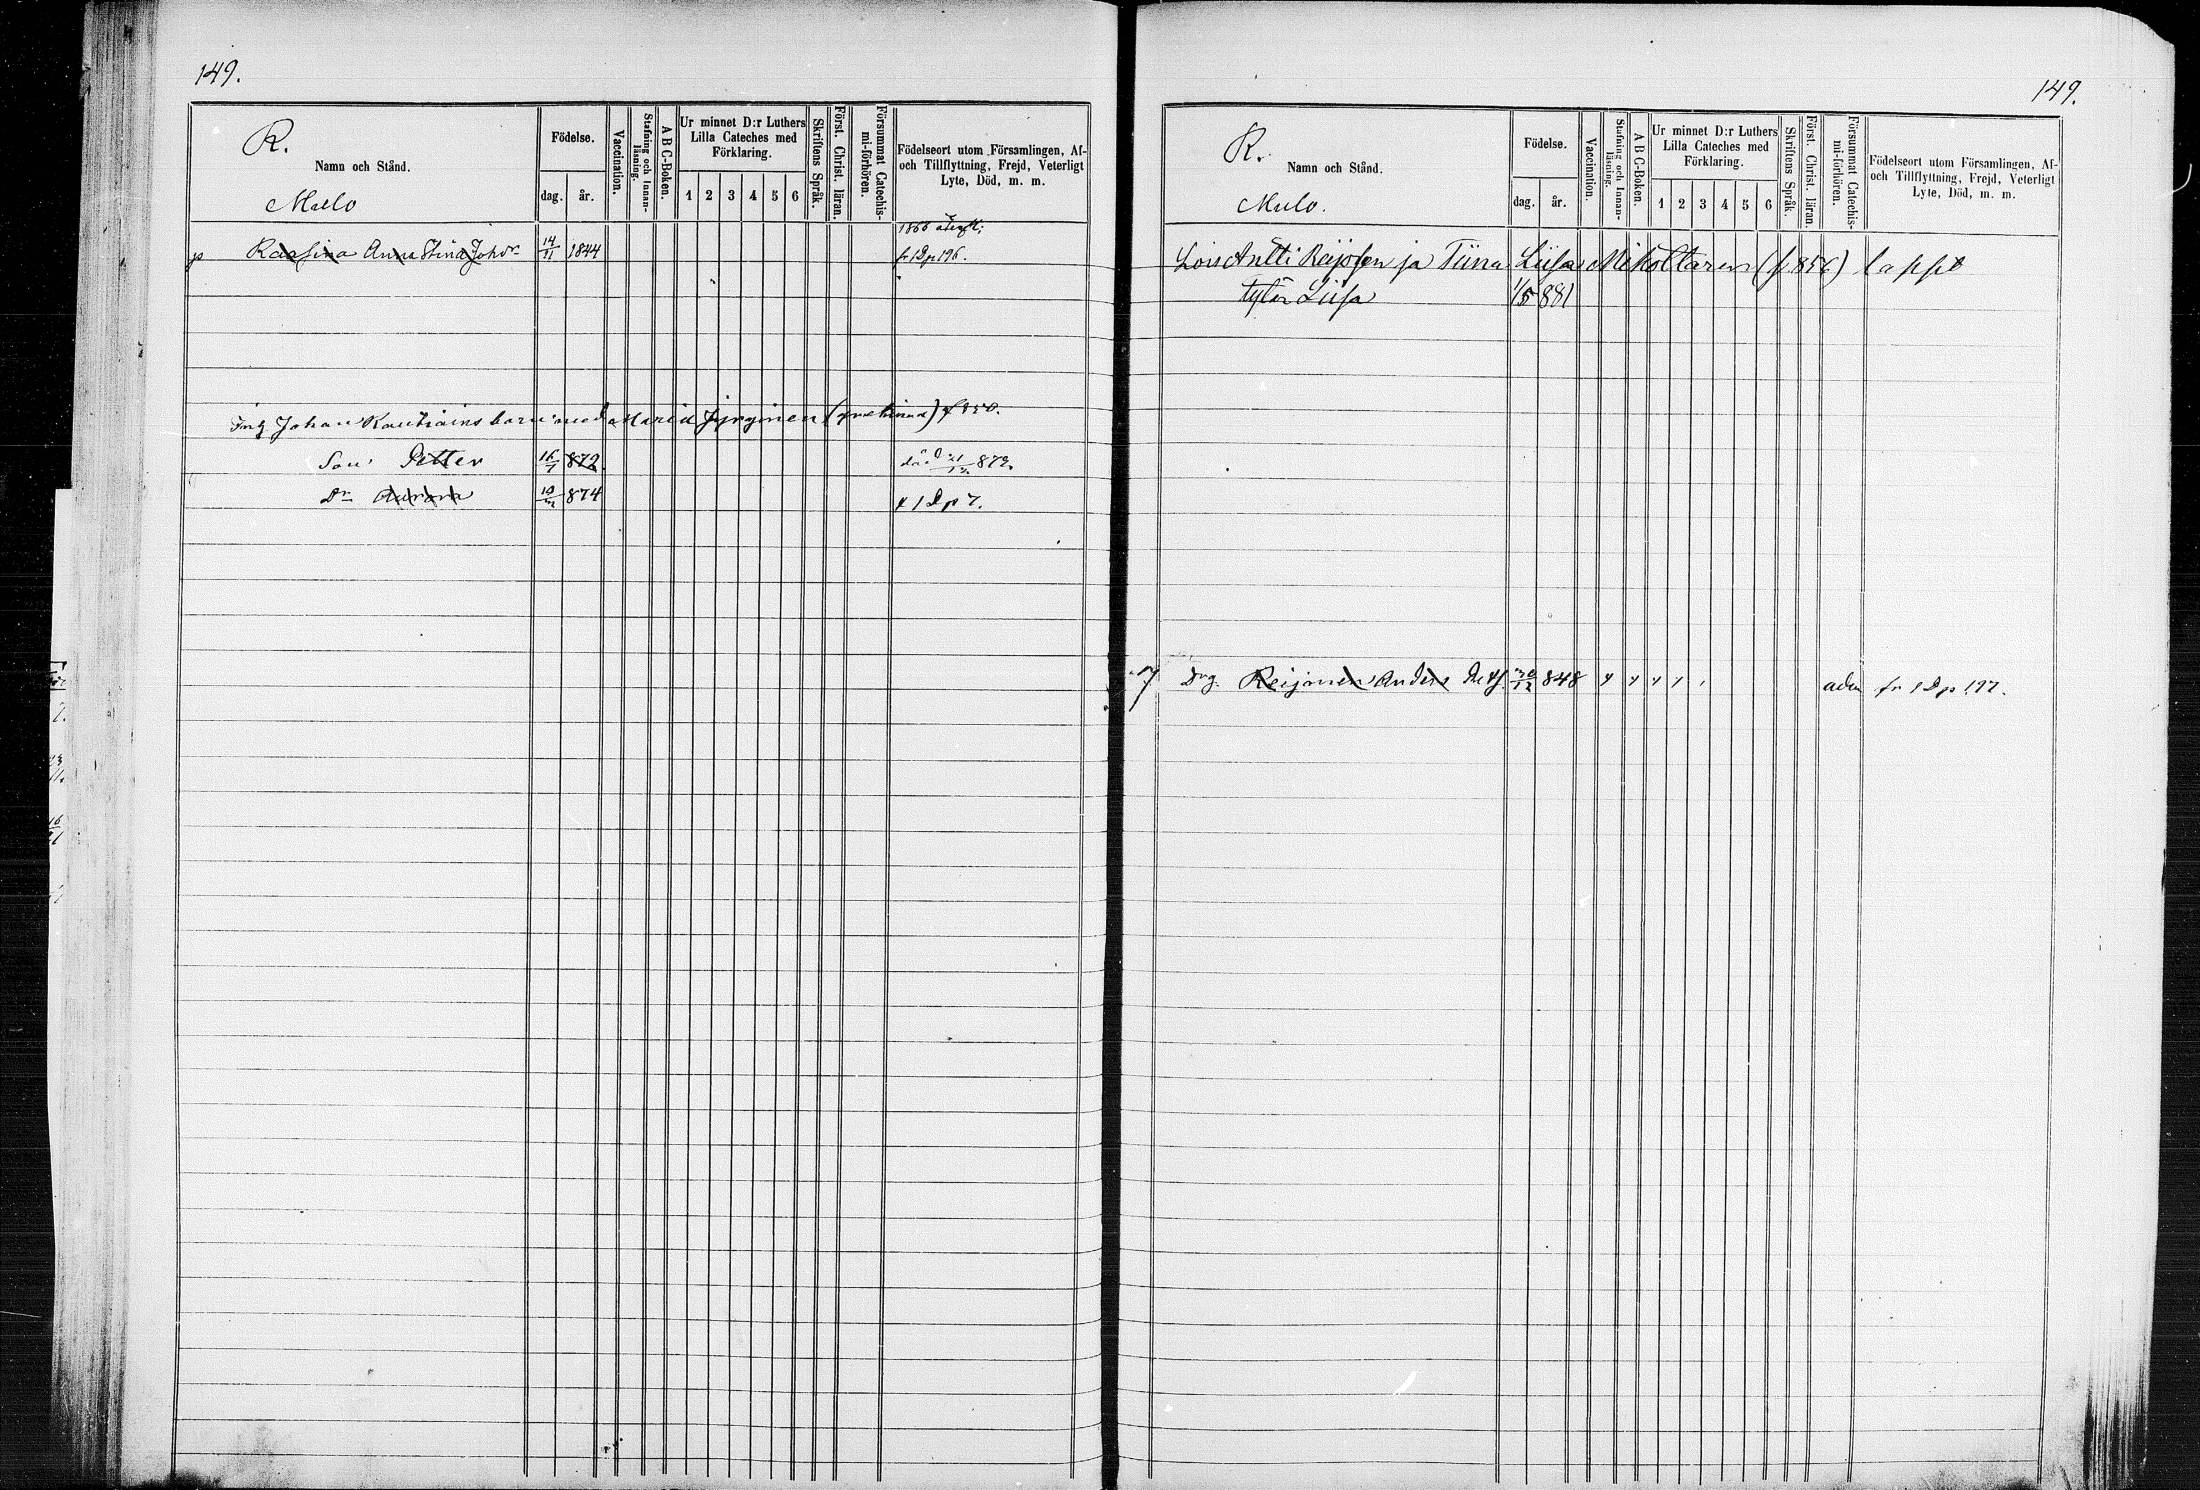 149.
R.
Namn och Stånd.
Födelse.
dag. år.
Vaccination.
Stafning och Innan-
läsning.
A B C-Boken.
Ur minnet D:r Luthers
Lilla Cateches med
Förklaring.
1 2 3 4 5 6
Skriftens Språk.
Först. Christ. läran.
Försummat Catechis-
mi-förhören.
Födelseort utom Församlingen, Af-
och Tillflyttning, Frejd, Veterligt
Lyte, Död, m. m.
Mulo
1866
p Anna Stina Johdr 14/11 1844 fr 1 D p 196.
Johan barn med Maria f 850.
Son Petter 16/1 872. död 21/12 873.
Dr Aurora 10/12 874 x 1 D p 7.
149.
R.
Namn och Stånd.
Födelse.
dag. år.
Vaccination.
Stafning och Innan-
läsning.
A B C-Boken.
Ur minnet D:r Luthers
Lilla Cateches med
Förklaring.
1 2 3 4 5 6
Skriftens Språk.
Först. Christ. läran.
Försummat Catechis-
mi-förhören.
Födelseort utom Församlingen, Af-
och Tillflyttning, Frejd, Veterligt
Lyte, Död, m. m.
Mulo.
Lois Antti Reijosen ja Tiina Liisa Mikottaren (f 856) lapset
tytär Liisa 1/5 881
Drg. Reijonen Anders 848 fr 1 D p 197.